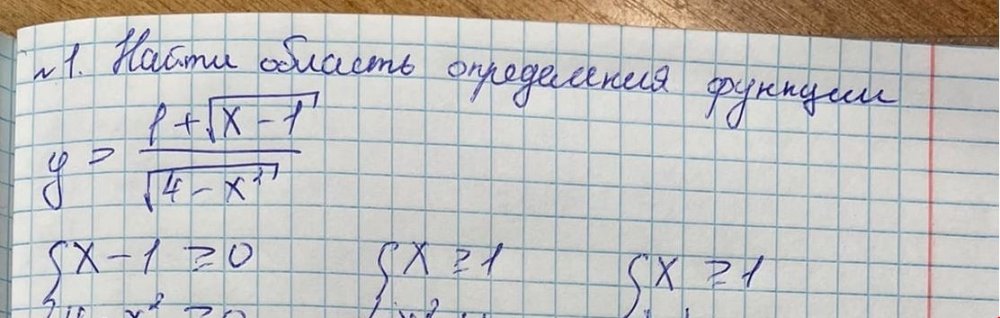 №1. Найти область определения функции
y = (1 + √(x - 1)) / √(4 - x²)
{ x - 1 ≥ 0 { x ≥ 1 { x ≥ 1